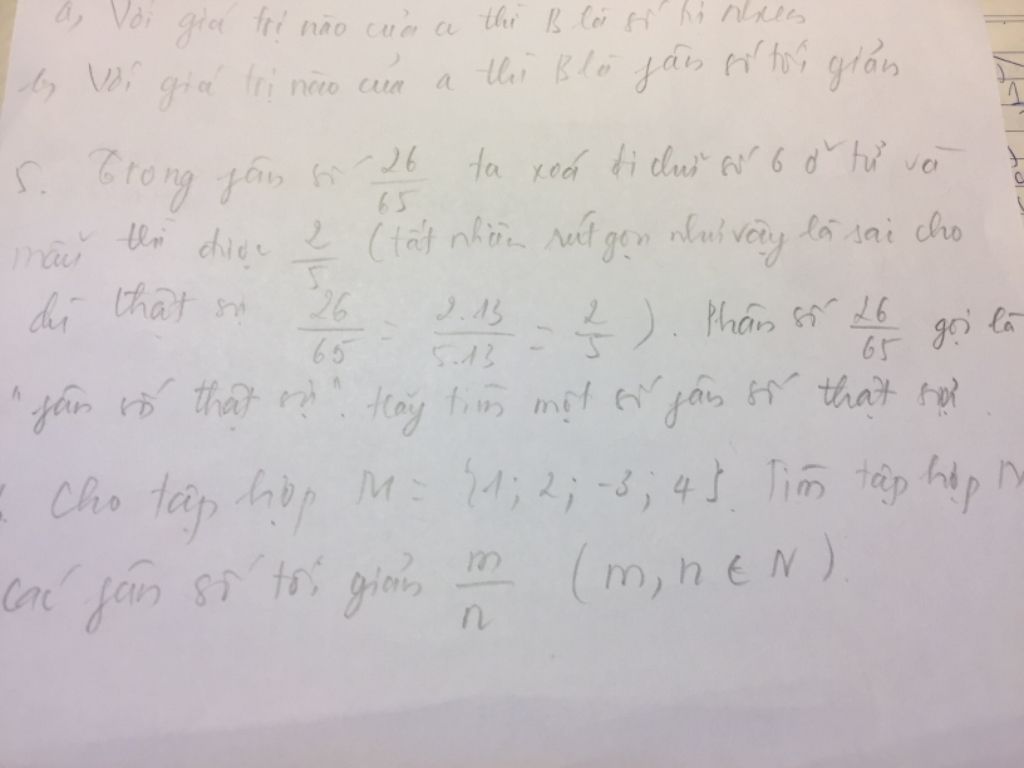 a, Với giá trị nào của a thì B là số tự nhiên
b, Với giá trị nào của a thì B là fân số tối giản
5. Trong fân số 26/65 ta xoá đi chữ số 6 ở tử và
mẫu thì được 2/5 (tất nhiên rút gọn như vậy là sai cho
dù thật sự 26/65 = 2.13/5.13 = 2/5). Phân số 26/65 gọi là
"fân số thật sự". Hãy tìm một số fân số thật sự.
Cho tập hợp M = {1; 2; -3; 4}. Tìm tập hợp M
các fân số tối giản m/n (m, n ∈ N).